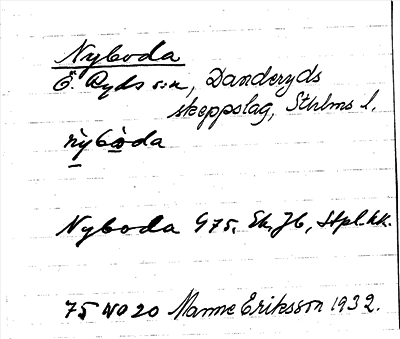 Nyboda
Ö. Ryds sn, Danderyds
skeppslag, Sthlms l.
nỳbòda
Nyboda G75. Ek. Jb, Stpl. kk.
75 NO 20 Manne Eriksson 1932.